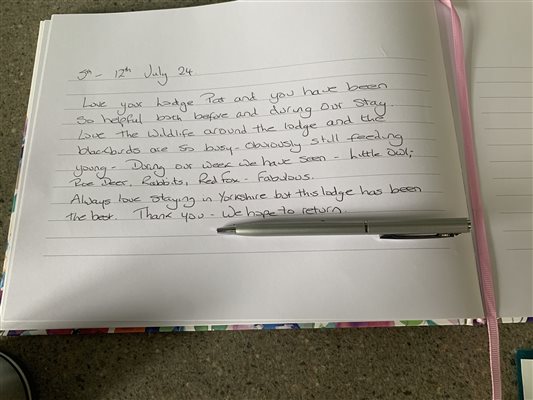 5th - 12th July 24.
Love your Lodge Pat and you have been
So helpful both before and during our stay.
Love the wildlife around the lodge and the
blackbirds are so busy - obviously still feeding
young - During our week we have seen - Little Owl,
Roe Deer, Rabbits, Red Fox - Fabulous.
Always love staying in Yorkshire but this lodge has been
the best. Thank you - We hope to return.